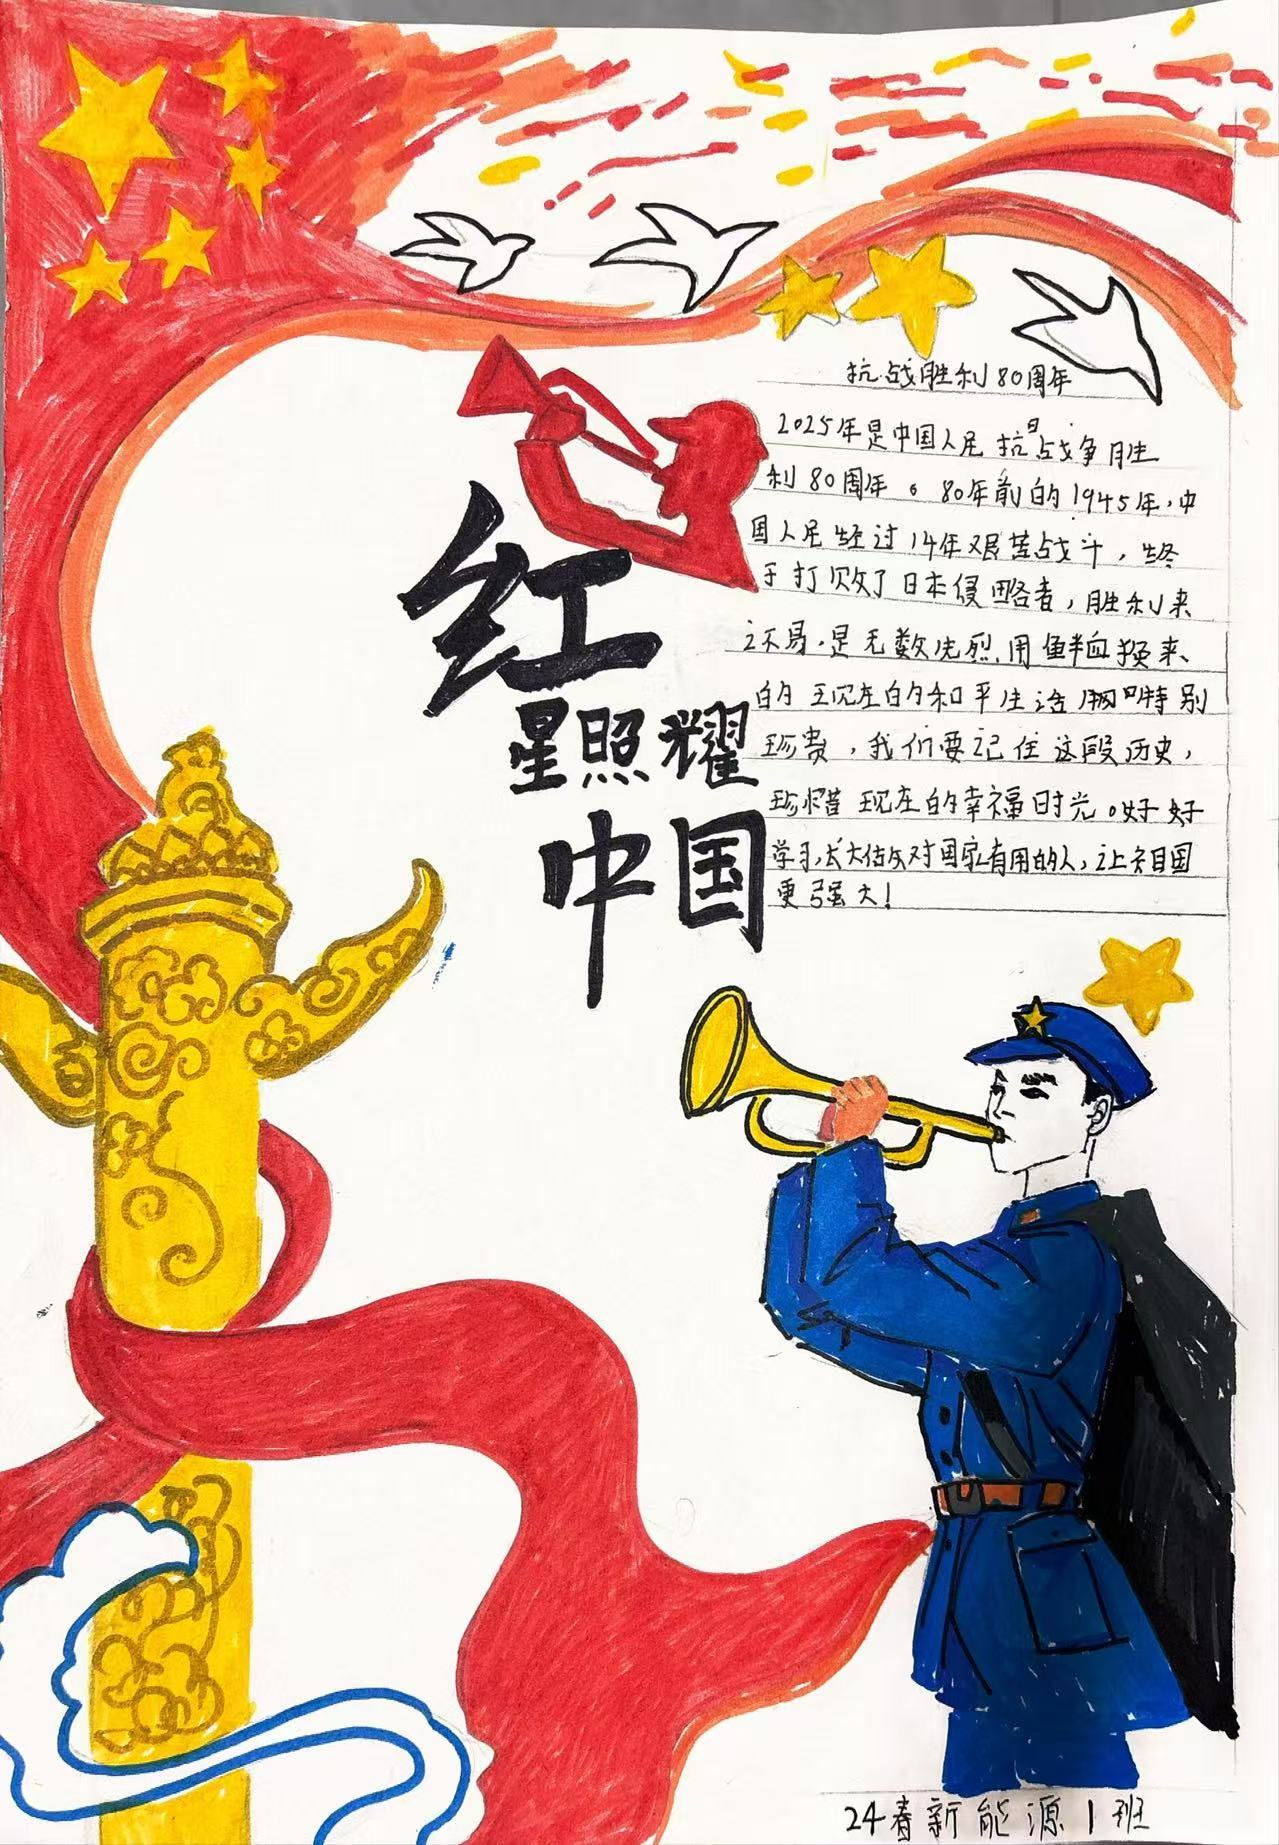 红
星照耀
中国
抗战胜利80周年
2025年是中国人民抗日战争胜
利80周年。80年前的1945年,中
国人民经过14年艰苦战斗,终
于打败了日本侵略者,胜利来
之不易,是无数先烈用鲜血换来
的 现在的和平生活 特别
珍贵,我们要记住这段历史,
珍惜现在的幸福时光。好好
学习,长大估为对国家有用的人,让祖国
更强大!
24春新能源1班